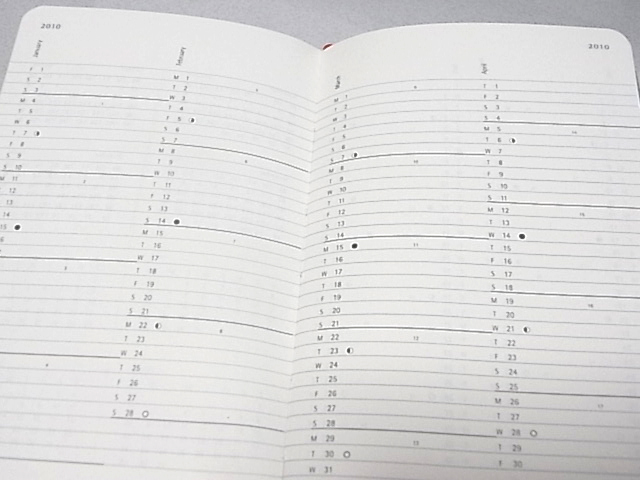 2010
January
F 1
S 2
S 3
M 4
T 5
W 6
T 7
F 8
S 9
S 10
M 11 2
12
13
14
15
3
4
February
M 1 5
T 2
W 3
T 4
F 5
S 6
S 7
M 8 6
T 9
W 10
T 11
F 12
S 13
S 14
M 15 7
T 16
W 17
T 18
F 19
S 20
S 21
M 22 8
T 23
W 24
T 25
F 26
S 27
S 28
2010
March
M 1 9
T 2
W 3
T 4
F 5
S 6
S 7
M 8 10
T 9
W 10
T 11
F 12
S 13
S 14
M 15 11
T 16
W 17
T 18
F 19
S 20
S 21
M 22 12
T 23
W 24
T 25
F 26
S 27
S 28
M 29 13
T 30
W 31
April
T 1
F 2
S 3
S 4
M 5 14
T 6
W 7
T 8
F 9
S 10
S 11
M 12 15
T 13
W 14
T 15
F 16
S 17
S 18
M 19 16
T 20
W 21
T 22
F 23
S 24
S 25
M 26 17
T 27
W 28
T 29
F 30